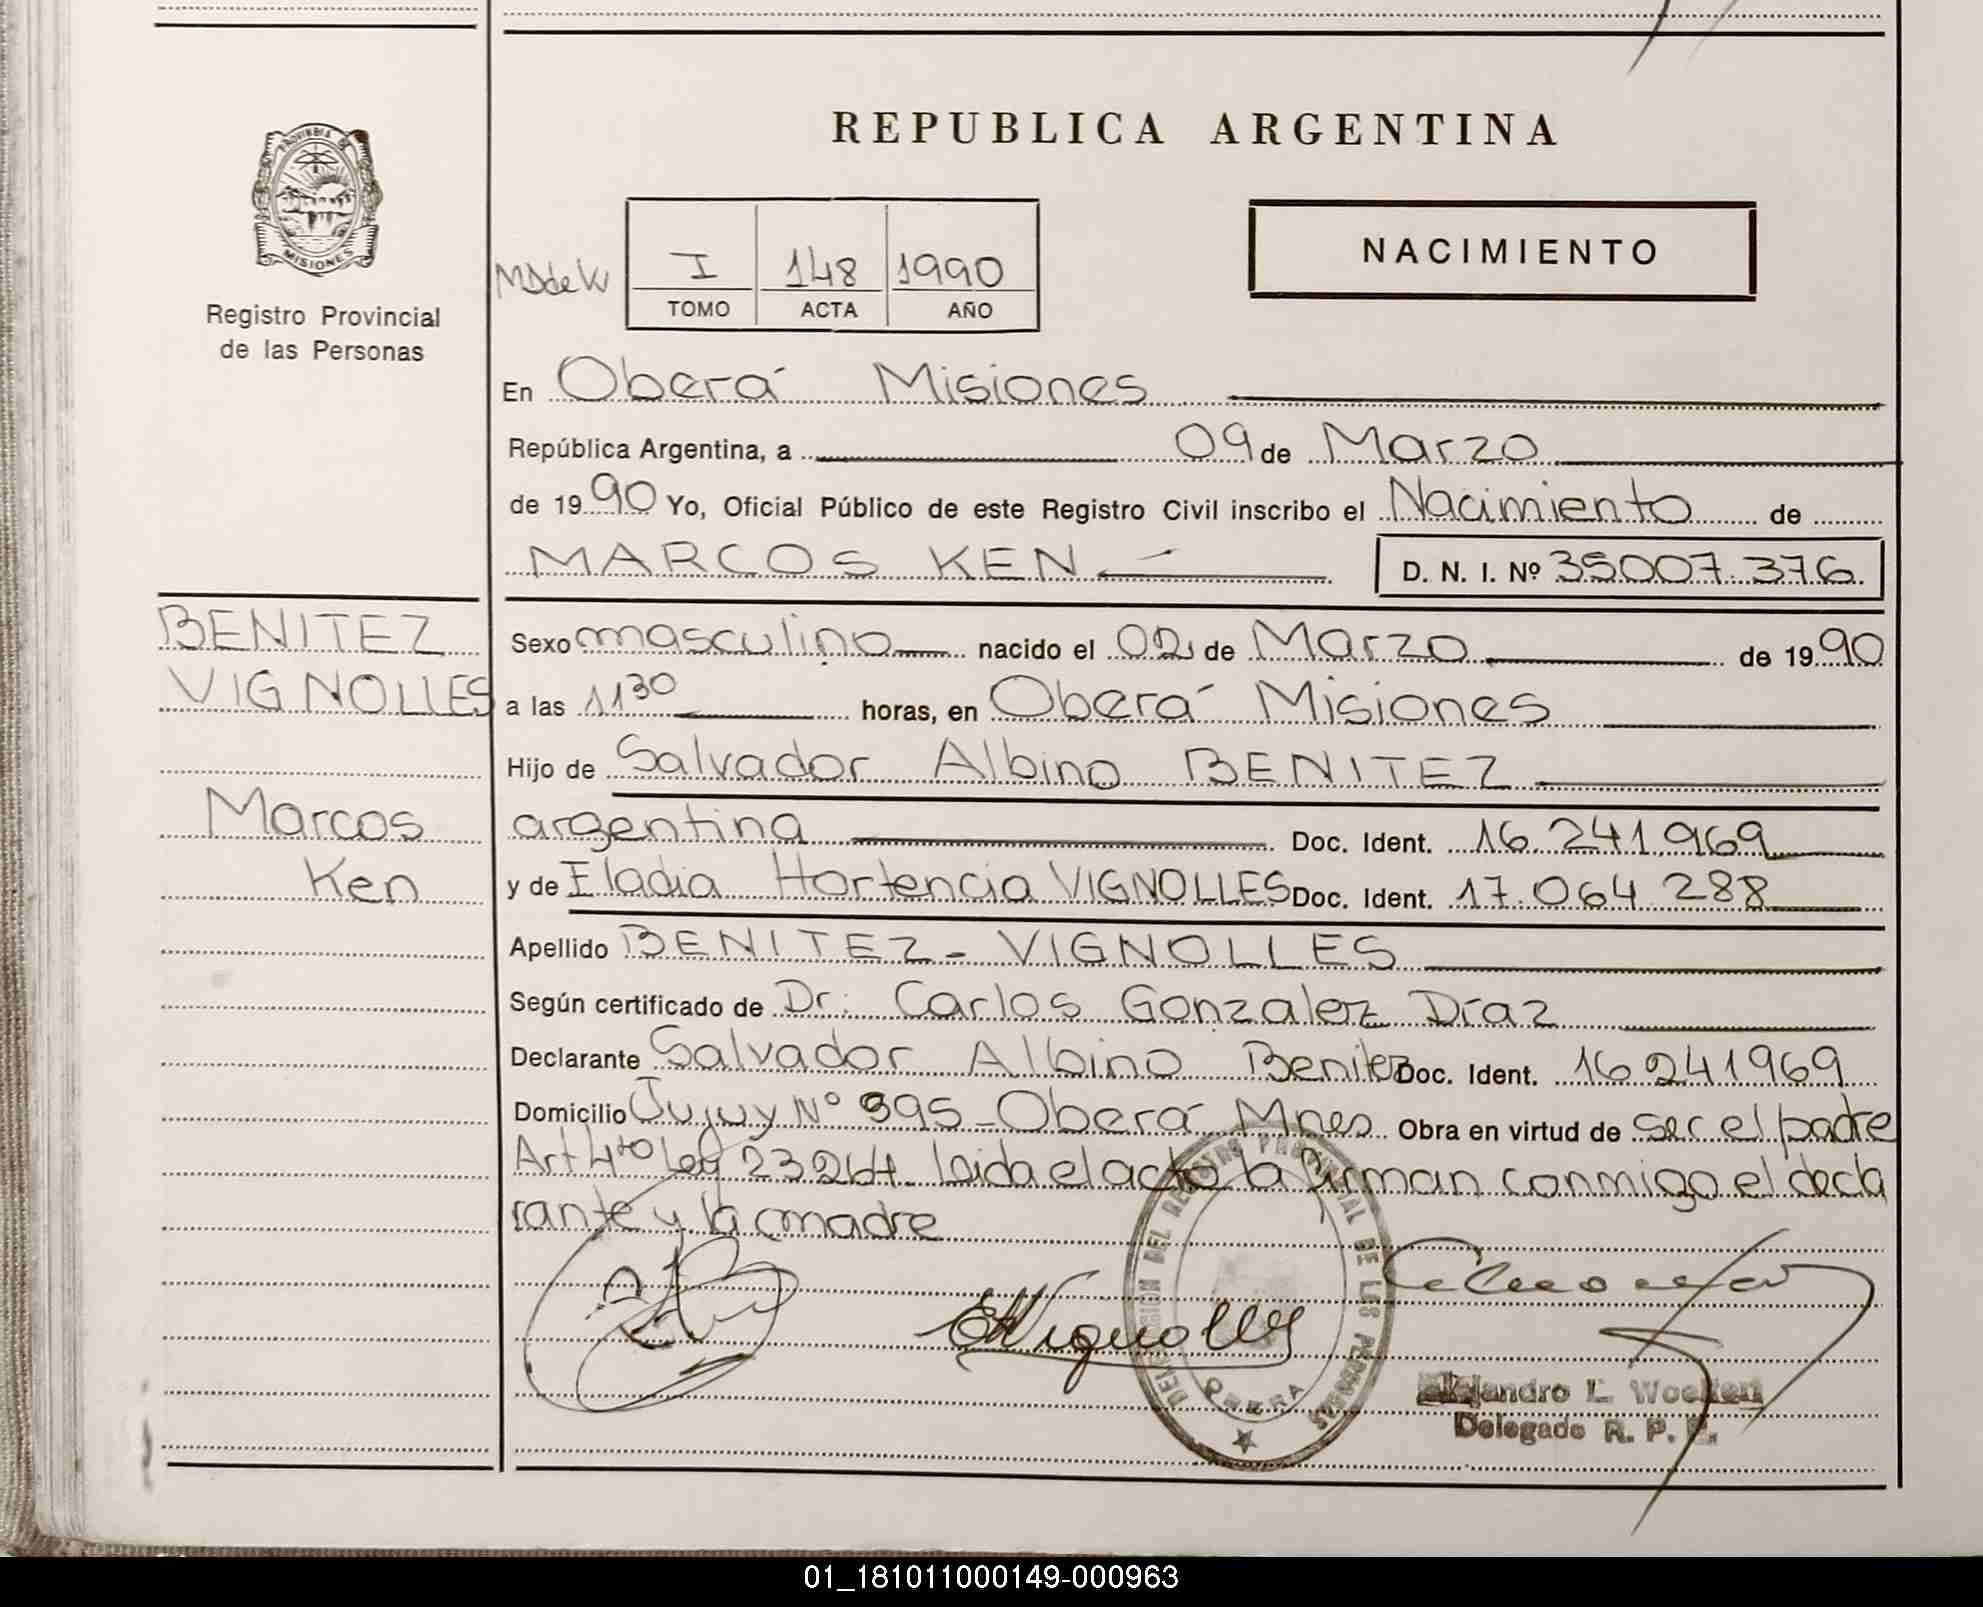 REPUBLICA ARGENTINA
PROVINCIA DE MISIONES
Registro Provincial
de las Personas
MDdeW
I 148 1990
TOMO ACTA AÑO
NACIMIENTO
En Oberá Misiones
República Argentina, a 09 de Marzo
de 1990 Yo, Oficial Público de este Registro Civil inscribo el Nacimiento de
MARCOS KEN D. N. I. Nº 35007.376.
BENITEZ
VIGNOLLES
Marcos
Ken
Sexo masculino nacido el 02 de Marzo de 1990
a las 11 30 horas, en Oberá Misiones
Hijo de Salvador Albino BENITEZ
argentina Doc. Ident. 16.241.969
y de Eladia Hortencia VIGNOLLES Doc. Ident. 17.064.288
Apellido BENITEZ - VIGNOLLES
Según certificado de Dr. Carlos Gonzalez Díaz
Declarante Salvador Albino Benitez Doc. Ident. 16241969
Domicilio Jujuy Nº 995 - Oberá Mnes Obra en virtud de ser el padre
Art 4to Ley 23264. Leida el acta la firman conmigo el decla
rante y la madre
EHVignolles
DELEGACION DEL REGISTRO PROVINCIAL DE LAS PERSONAS
OBERA
Alejandro L. Woelken
Delegado R. P. P.
01_181011000149-000963